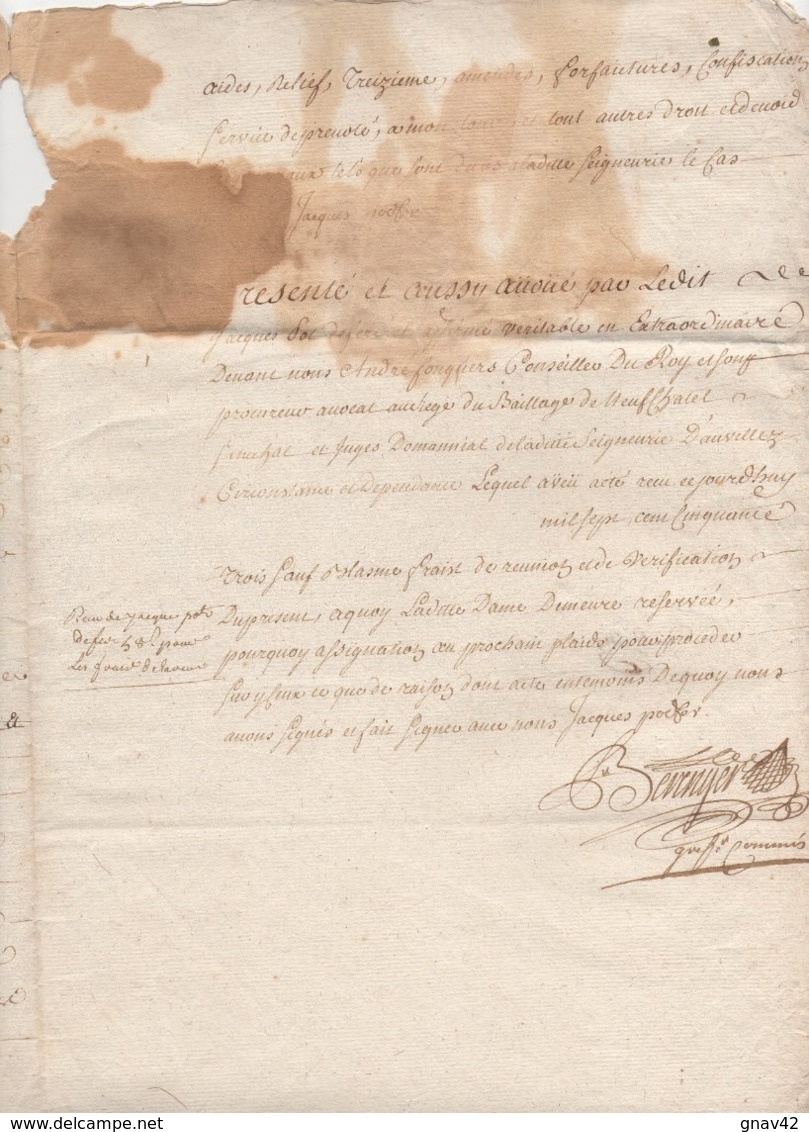 aides, Relief, Treizieme, amendes, forfaictures, Confiscation
Service deprevoté, a mon tour, et tout autres droit et devoir
que sont dubs a laditte Seigneurie le Cas
Jacques
resenté et aussy avoüé par Ledit
Jacques Pot defer et affirmé veritable en Extraordinaire
Devant nous André fouquers Conseiller Du Roy et son
procureur avocat au siege du Baillage de Neufchatel
senechal et Juges Domannial de laditte Seigneurie D'auvillez
Circonstance et Dependance Lequel aveü a été receu ce jourdhuy
mil sept cent Cinquante
trois sauf Blasme fraist de reunion et de Verification
Du present, aquoy Laditte Dame Demeure reservée,
pourquoy assignation au prochain plaids pour proceder
sur yceux ce que de raison dont acte en temoins De quoy nous
avons signés et fait signer avec nous Jacques potdefer.
Receu de jacque pot
defer pour
Les frais
Bennyer
greff.r Commis
www.delcampe.net
gnav42